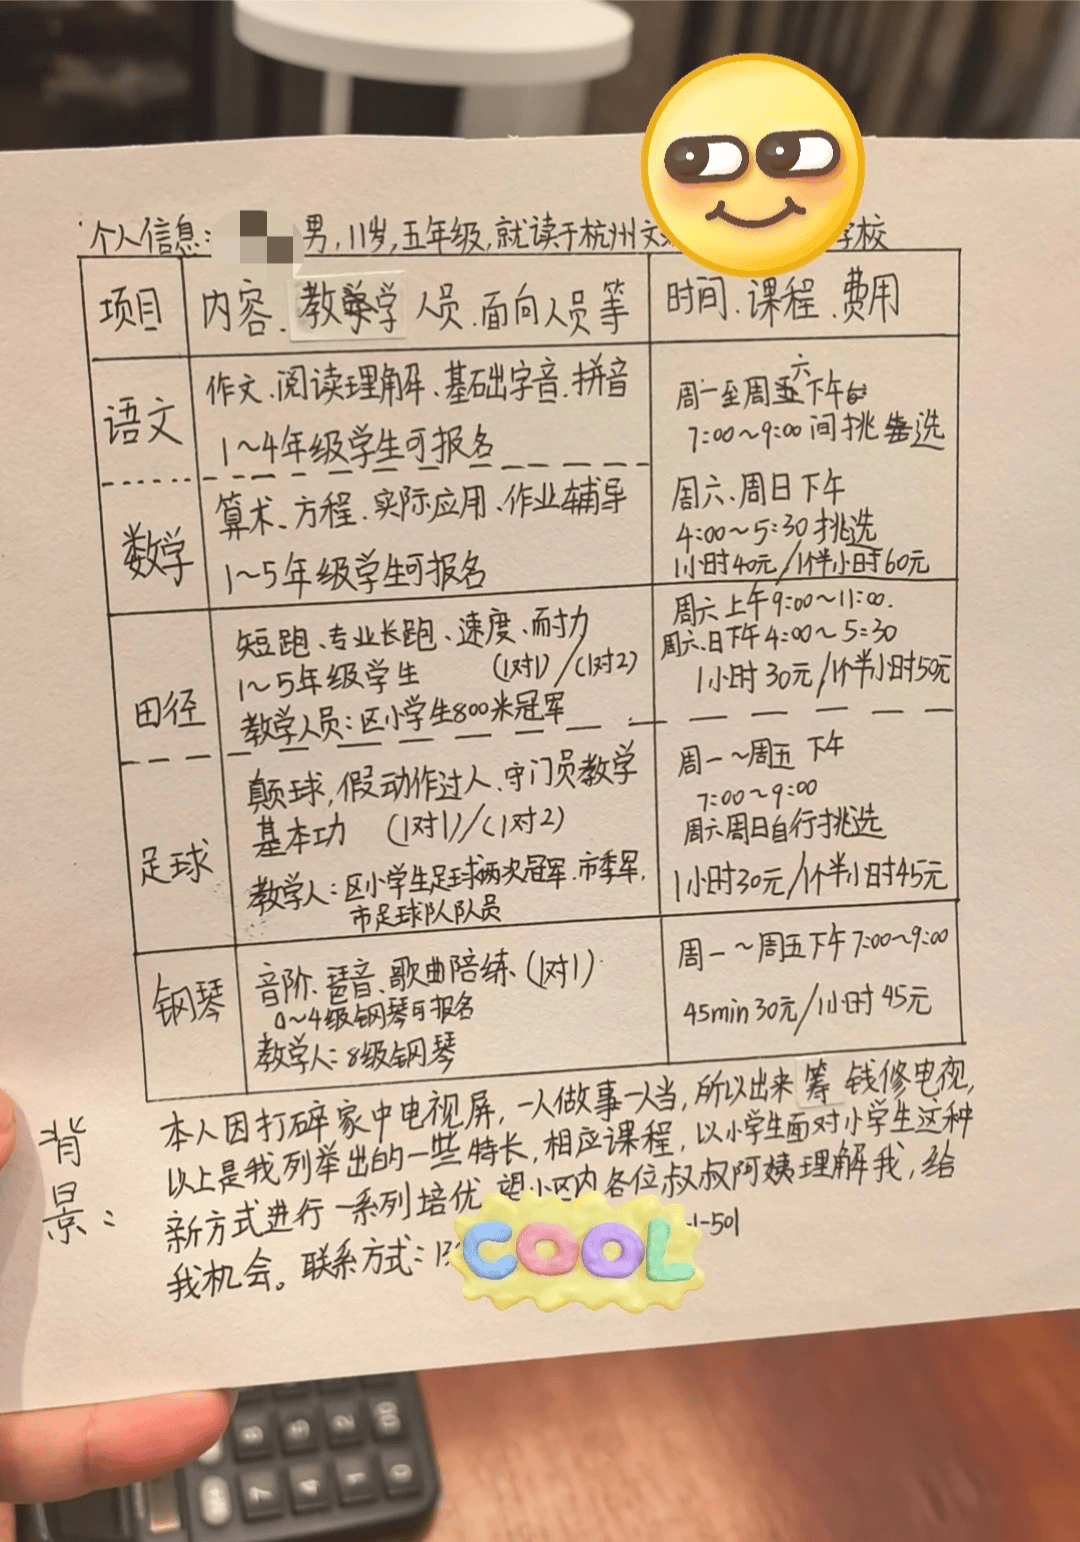 个人信息: 男,11岁,五年级,就读于杭州文 学校
项目
内容、教学 人员、面向人员等
时间、课程、费用
语文
作文、阅读理解、基础字音、拼音
1~4年级学生可报名
周一至周六下午
7:00~9:00间挑选
数学
算术、方程、实际应用、作业辅导
1~5年级学生可报名
周六、周日下午
4:00~5:30挑选
1小时40元/1个半小时60元
田径
短跑、专业长跑、速度、耐力
1~5年级学生 (1对1)/(1对2)
教学人员:区小学生800米冠军
周六上午9:00~11:00.
周六、日下午4:00~5:30
1小时30元/1个半小时50元
足球
颠球,假动作过人、守门员教学
基本功 (1对1)/(1对2)
教学人:区小学生足球两次冠军.市季军,
市足球队队员
周一~周五下午
7:00~9:00
周六周日自行挑选
1小时30元/1个半小时45元
钢琴
音阶、琶音、歌曲陪练、(1对1)
0~4级钢琴可报名
教学人:8级钢琴
周一~周五下午7:00~9:00
45min30元/1小时45元
背景:
本人因打碎家中电视屏,一人做事一人当,所以出来筹钱修电视,
以上是我列举出的一些特长,相应课程,以小学生面对小学生这种
新方式进行一系列培优,望小区内各位叔叔阿姨理解我,给
我机会。联系方式:13 -1-501
COOL
7 4 1 0
8 5 2 00